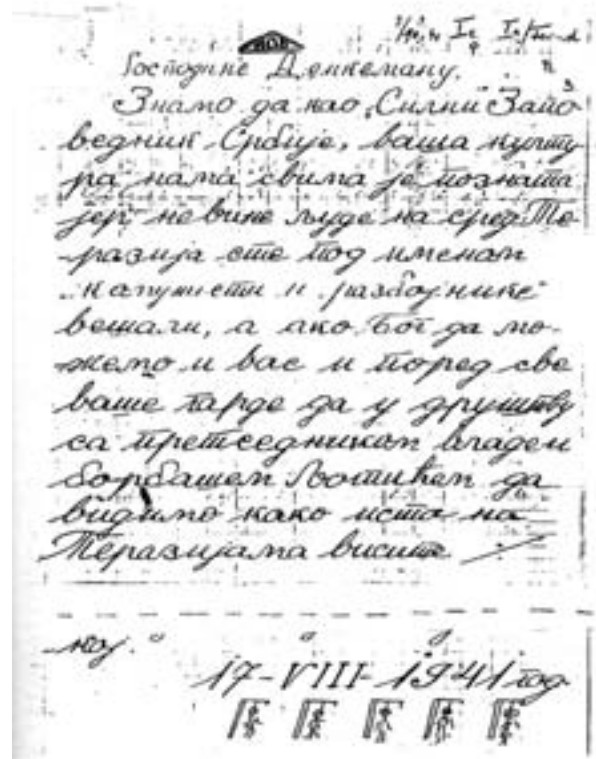 Господине Денкеману.
Знамо да као "Силни" Запо
ведник Србије, ваша култу
ра нама свима је позната
јер, невине људе на сред Те
разија сте под именом
"капунисти и разбојнике"
вешали, а ако Бог да мо-
жемо и вас и поред све
ваше гарде да у друштву
са претседником владен
борбашем Љотићем да
видимо како исто на
Теразијама висите
17-VIII-1941 год.